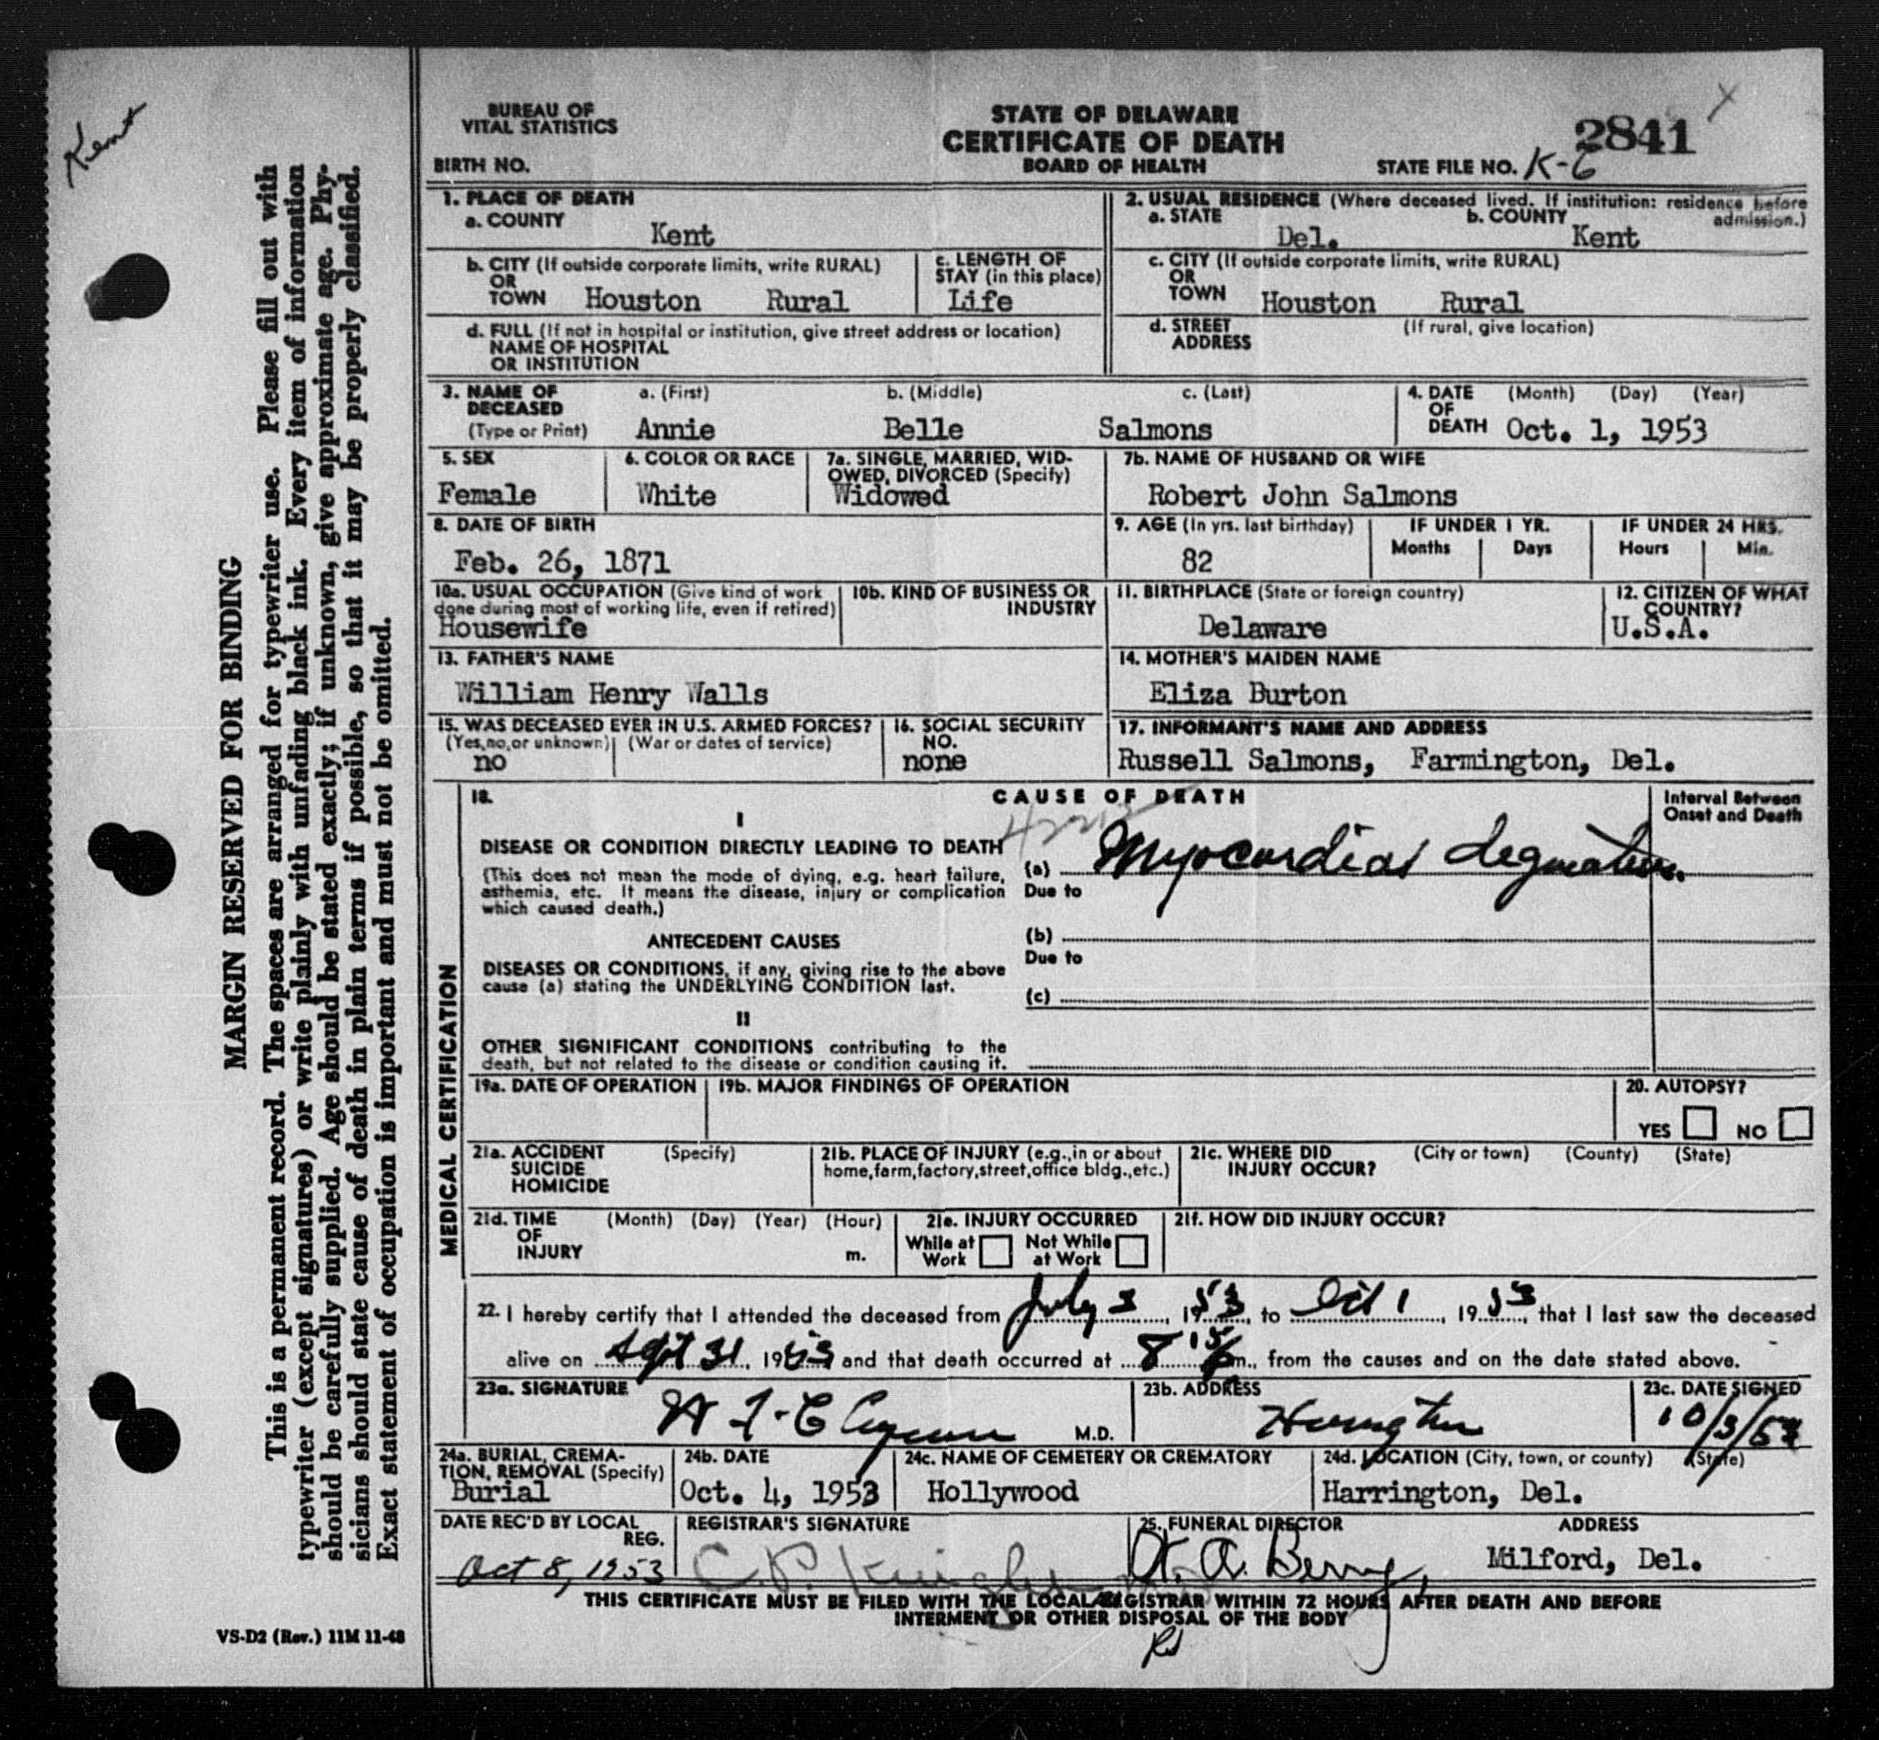 Kent
MARGIN RESERVED FOR BINDING
This is a permanent record. The spaces are arranged for typewriter use. Please fill out with
typewriter (except signatures) or write plainly with unfading black ink. Every item of information
should be carefully supplied. Age should be stated exactly; if unknown, give approximate age. Phy-
sicians should state cause of death in plain terms if possible, so that it may be properly classified.
Exact statement of occupation is important and must not be omitted.
VS-D2 (Rev.) 11M 11-48
BUREAU OF
VITAL STATISTICS
BIRTH NO.
STATE OF DELAWARE
CERTIFICATE OF DEATH
BOARD OF HEALTH
2841
STATE FILE NO. K-6
1. PLACE OF DEATH
a. COUNTY
Kent
2. USUAL RESIDENCE (Where deceased lived. If institution: residence before
admission.)
a. STATE b. COUNTY
Del. Kent
b. CITY (If outside corporate limits, write RURAL)
OR
TOWN Houston Rural
c. LENGTH OF
STAY (in this place)
Life
c. CITY (If outside corporate limits, write RURAL)
OR
TOWN Houston Rural
d. FULL (If not in hospital or institution, give street address or location)
NAME OF HOSPITAL
OR INSTITUTION
d. STREET (If rural, give location)
ADDRESS
3. NAME OF a. (First) b. (Middle) c. (Last)
DECEASED
(Type or Print) Annie Belle Salmons
4. DATE (Month) (Day) (Year)
OF
DEATH Oct. 1, 1953
5. SEX
Female
6. COLOR OR RACE
White
7a. SINGLE, MARRIED, WID-
OWED, DIVORCED (Specify)
Widowed
7b. NAME OF HUSBAND OR WIFE
Robert John Salmons
8. DATE OF BIRTH
Feb. 26, 1871
9. AGE (In yrs. last birthday)
82
IF UNDER 1 YR.
Months Days
IF UNDER 24 HRS.
Hours Min.
10a. USUAL OCCUPATION (Give kind of work
done during most of working life, even if retired)
Housewife
10b. KIND OF BUSINESS OR
INDUSTRY
11. BIRTHPLACE (State or foreign country)
Delaware
12. CITIZEN OF WHAT
COUNTRY?
U.S.A.
13. FATHER'S NAME
William Henry Walls
14. MOTHER'S MAIDEN NAME
Eliza Burton
15. WAS DECEASED EVER IN U.S. ARMED FORCES?
(Yes, no, or unknown) (War or dates of service)
no
16. SOCIAL SECURITY
NO.
none
17. INFORMANT'S NAME AND ADDRESS
Russell Salmons, Farmington, Del.
MEDICAL CERTIFICATION
18. CAUSE OF DEATH
Interval Between
Onset and Death
I
DISEASE OR CONDITION DIRECTLY LEADING TO DEATH
(This does not mean the mode of dying, e.g. heart failure,
asthemia, etc. It means the disease, injury or complication
which caused death.)
(a) Myocardial
Due to
ANTECEDENT CAUSES
DISEASES OR CONDITIONS, if any, giving rise to the above
cause (a) stating the UNDERLYING CONDITION last.
(b)
Due to
(c)
II
OTHER SIGNIFICANT CONDITIONS contributing to the
death, but not related to the disease or condition causing it.
19a. DATE OF OPERATION
19b. MAJOR FINDINGS OF OPERATION
20. AUTOPSY?
YES NO
21a. ACCIDENT (Specify)
SUICIDE
HOMICIDE
21b. PLACE OF INJURY (e.g., in or about
home, farm, factory, street, office bldg., etc.)
21c. WHERE DID (City or town) (County) (State)
INJURY OCCUR?
21d. TIME (Month) (Day) (Year) (Hour)
OF
INJURY m.
21e. INJURY OCCURRED
While at Work Not While at Work
21f. HOW DID INJURY OCCUR?
22. I hereby certify that I attended the deceased from July 3, 1953, to Oct 1, 1953, that I last saw the deceased
alive on Sept 31, 1953 and that death occurred at 8 15 p m., from the causes and on the date stated above.
23a. SIGNATURE
M.D.
23b. ADDRESS
Harrington
23c. DATE SIGNED
10/3/53
24a. BURIAL, CREMA-
TION, REMOVAL (Specify)
Burial
24b. DATE
Oct. 4, 1953
24c. NAME OF CEMETERY OR CREMATORY
Hollywood
24d. LOCATION (City, town, or county) (State)
Harrington, Del.
DATE REC'D BY LOCAL
REG.
Oct 8, 1953
REGISTRAR'S SIGNATURE
C. P.
25. FUNERAL DIRECTOR ADDRESS
A. Berry, Milford, Del.
THIS CERTIFICATE MUST BE FILED WITH THE LOCAL REGISTRAR WITHIN 72 HOURS AFTER DEATH AND BEFORE
INTERMENT OR OTHER DISPOSAL OF THE BODY